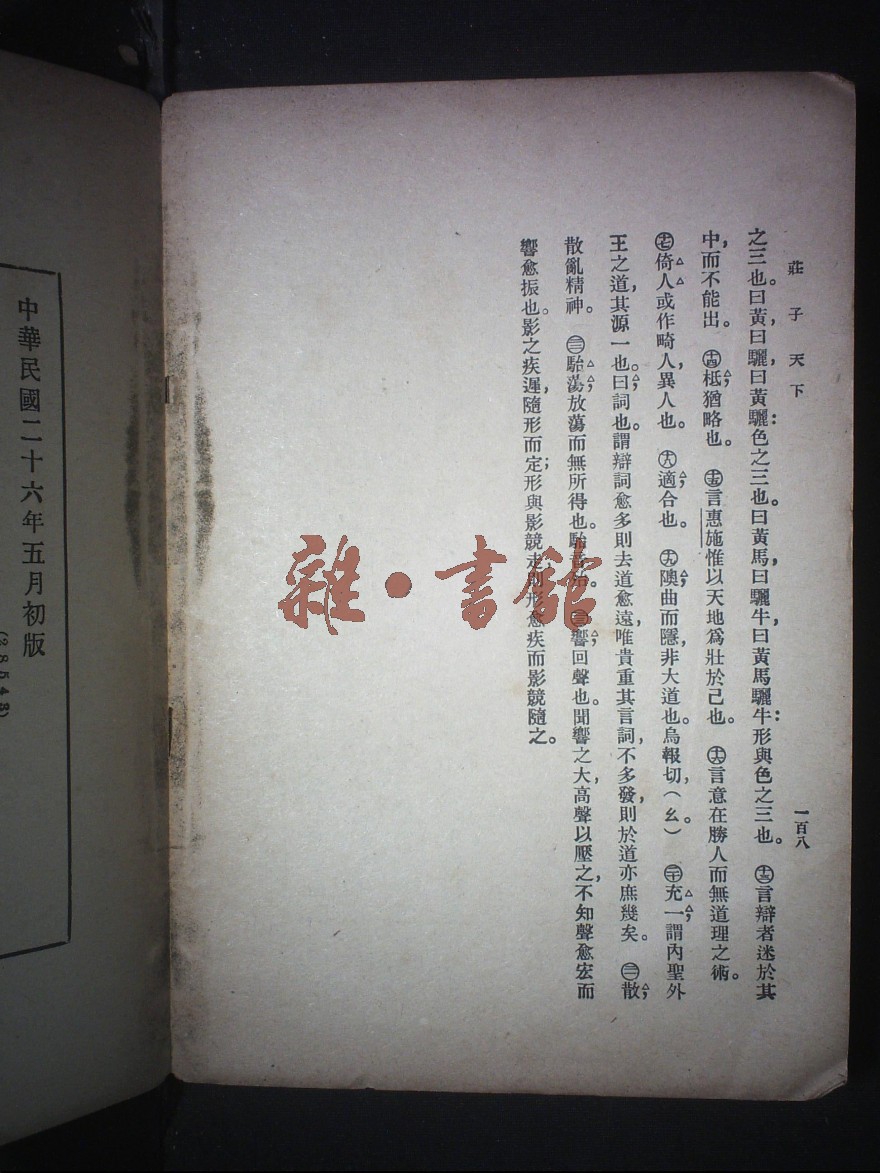 莊子天下
一百八
之三也。曰黃,曰驪,曰黃驪:色之三也。曰黃馬,曰驪牛,曰黃馬驪牛:形與色之三也。㊂言辯者迷於其
中,而不能出。柢,猶略也。言惠施惟以天地爲壯於己也。言意在勝人而無道理之術。
倚人或作畸人,異人也。適,合也。隩,曲而隱,非大道也。烏報切,(ㄠ。)充一,謂內聖外
王之道,其源一也。曰,詞也。謂辯詞愈多則去道愈遠,唯貴重其言詞,不多發,則於道亦庶幾矣。散,
散亂精神。駘蕩,放蕩而無所得也。駘音殆。響,回聲也。聞響之大,高聲以壓之,不知聲愈宏而
響愈振也。影之疾遲,隨形而定;形與影競走,則形愈疾而影競隨之。
中華民國二十六年五月初版
雜·書館